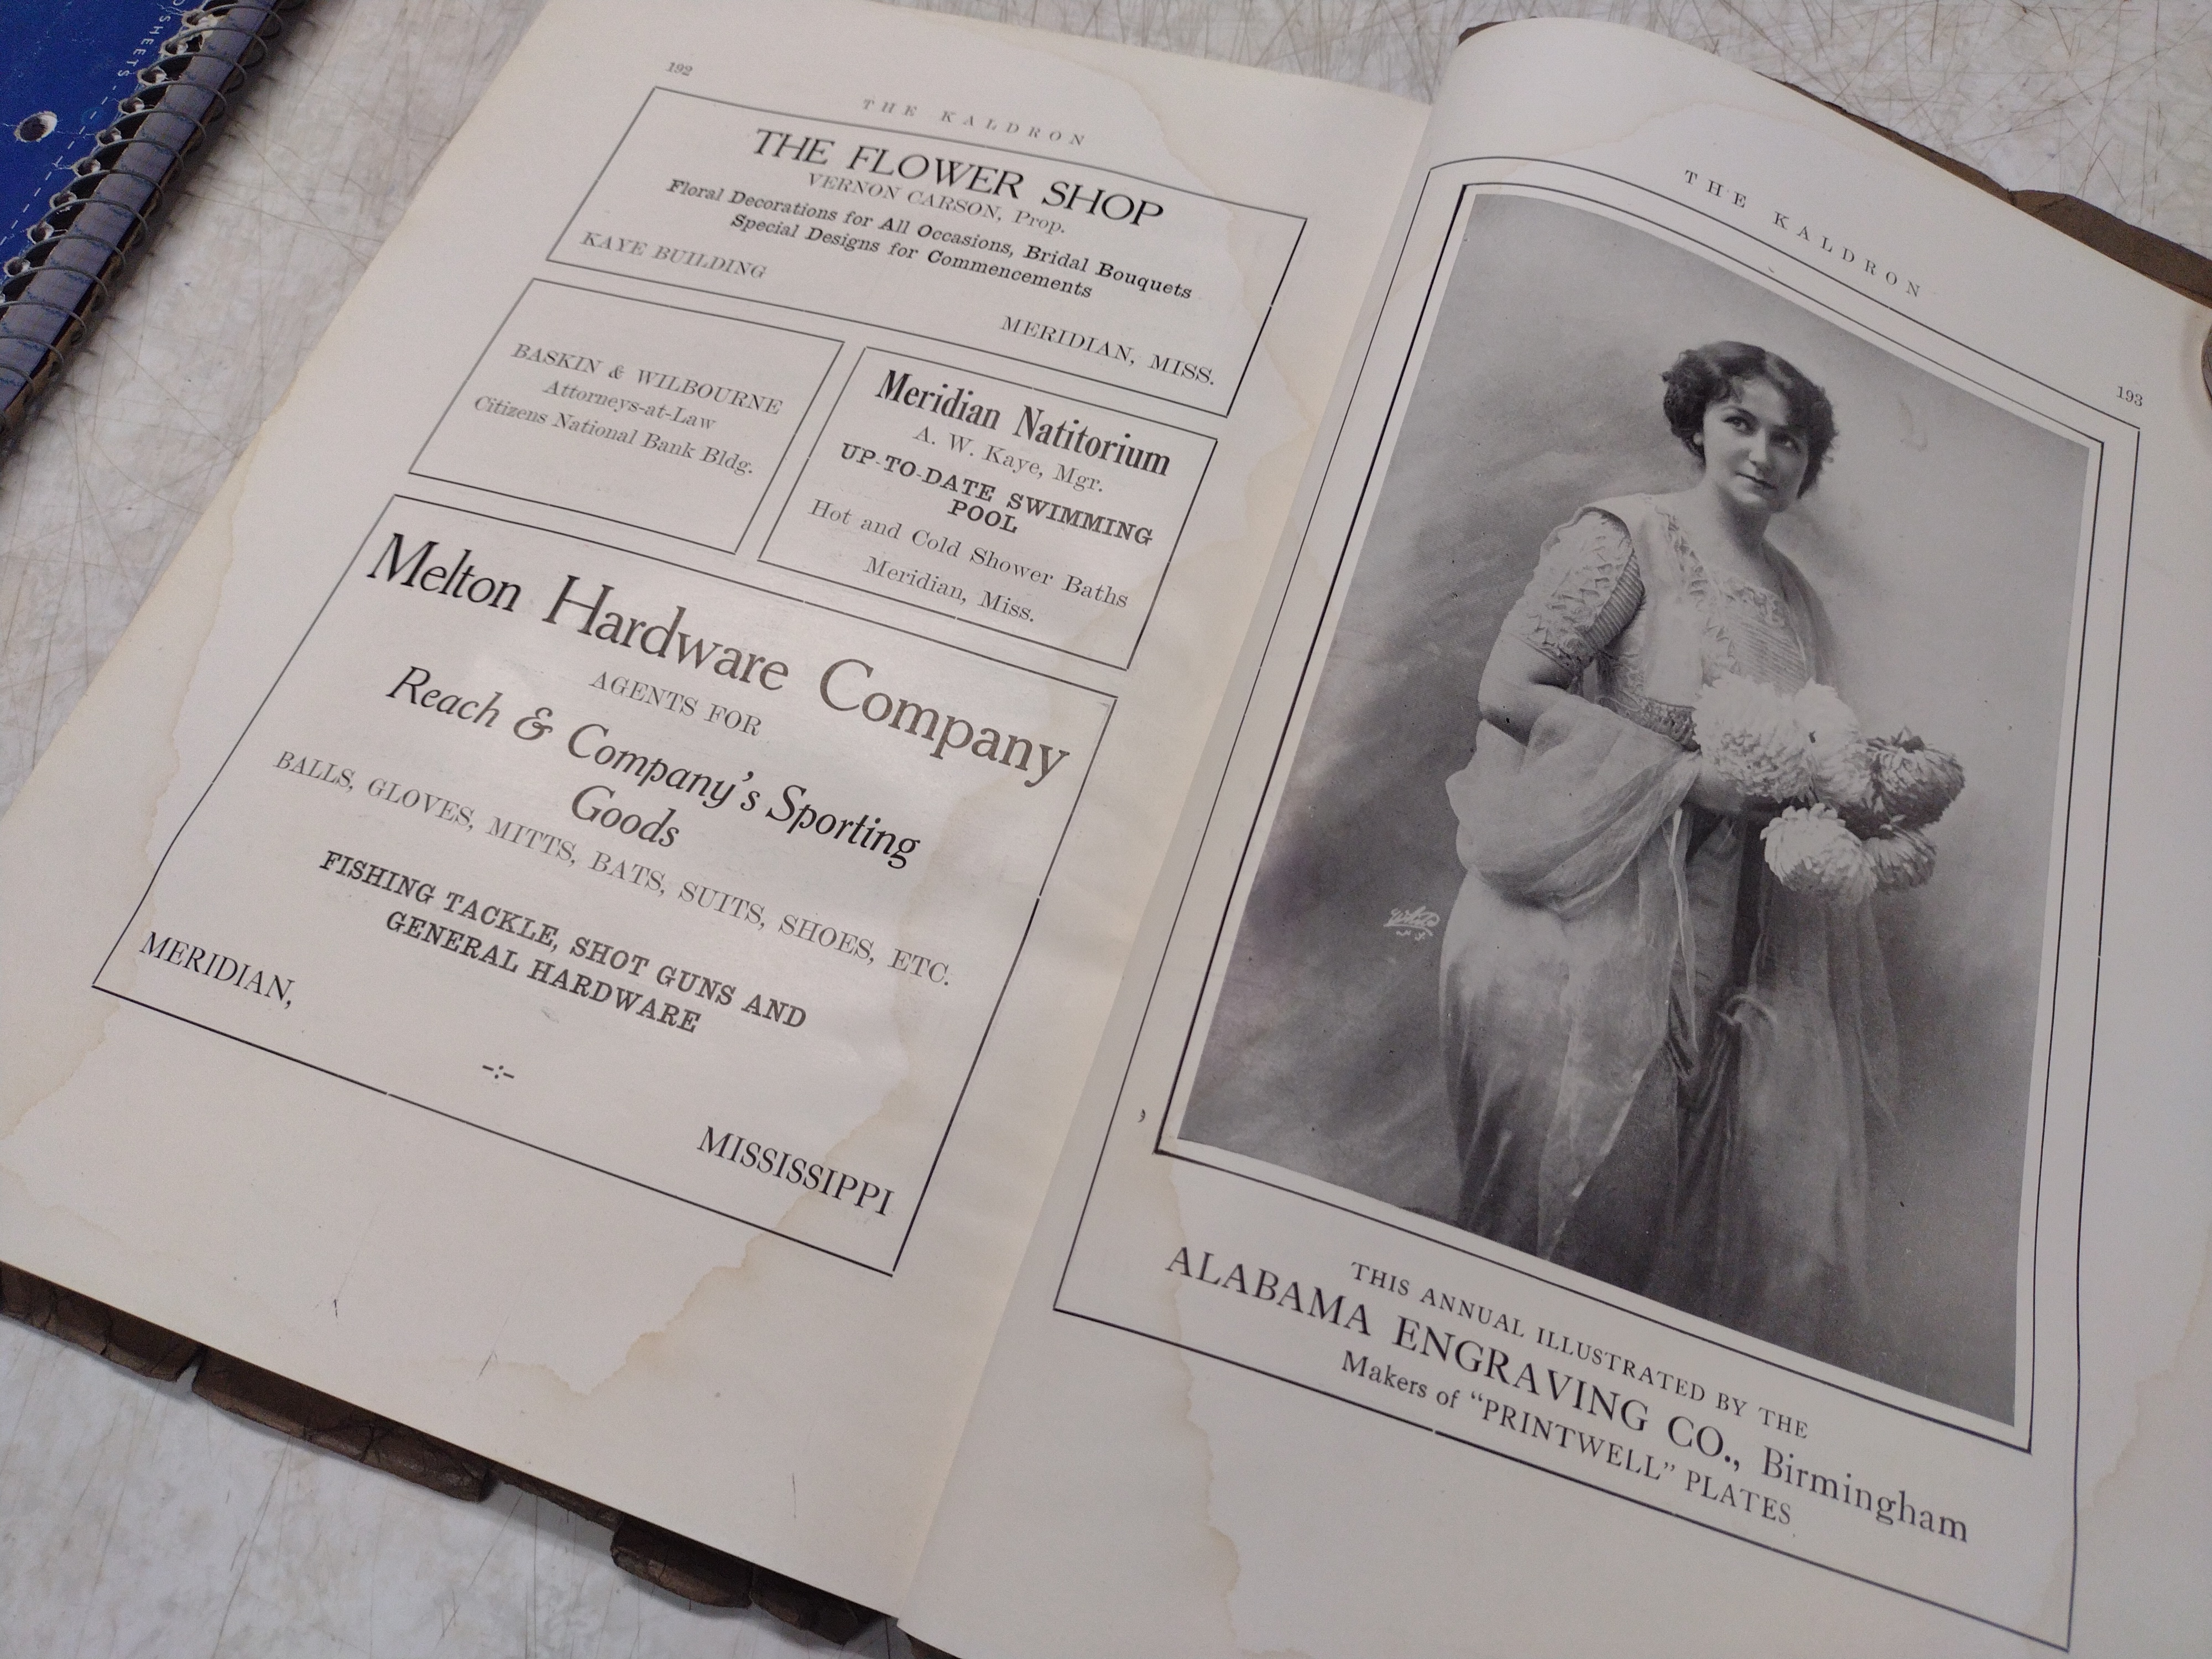 SHEETS
192
THE KALDRON
THE FLOWER SHOP
VERNON CARSON, Prop.
Floral Decorations for All Occasions, Bridal Bouquets
Special Designs for Commencements
KAYE BUILDING
MERIDIAN, MISS.
BASKIN & WILBOURNE
Attorneys-at-Law
Citizens National Bank Bldg.
Meridian Natitorium
A. W. Kaye, Mgr.
UP-TO-DATE SWIMMING
POOL
Hot and Cold Shower Baths
Meridian, Miss.
Melton Hardware Company
AGENTS FOR
Reach & Company's Sporting
Goods
BALLS, GLOVES, MITTS, BATS, SUITS, SHOES, ETC.
FISHING TACKLE, SHOT GUNS AND
GENERAL HARDWARE
MERIDIAN,
-:-
MISSISSIPPI
THE KALDRON
193
White
N.Y.
THIS ANNUAL ILLUSTRATED BY THE
ALABAMA ENGRAVING CO., Birmingham
Makers of "PRINTWELL" PLATES